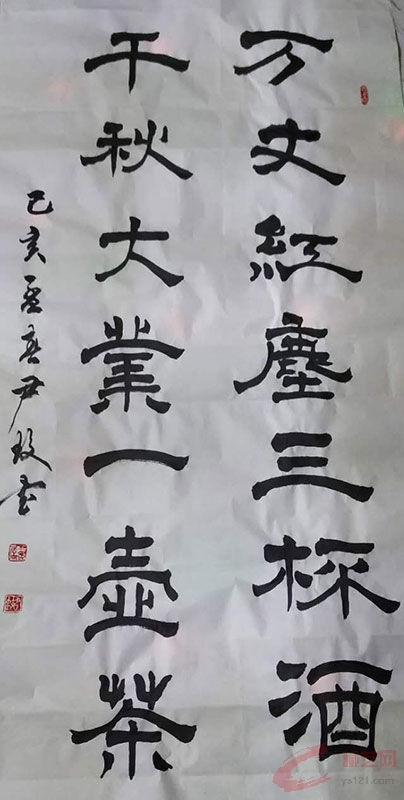 万丈紅塵三杯酒
千秋大業一壺茶
己亥孟尹玫书
ys121.com